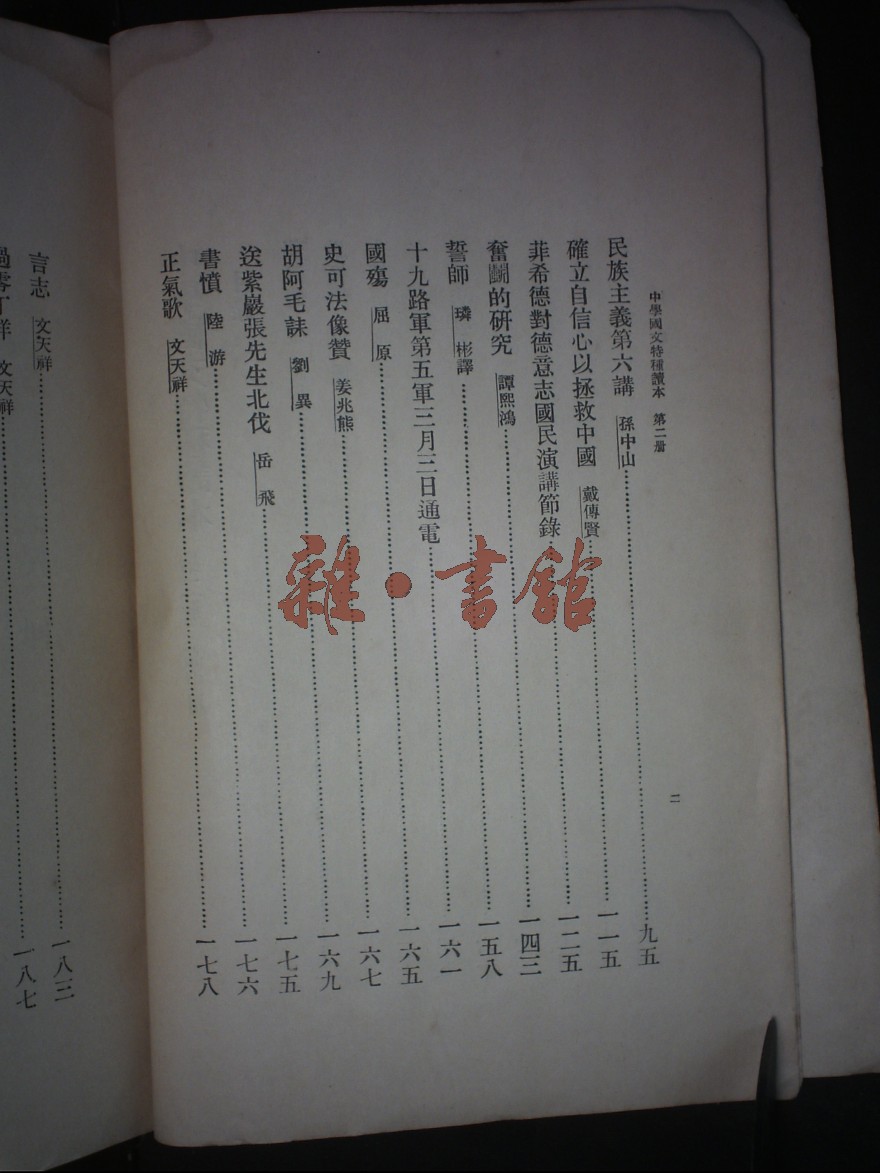 中學國文特種讀本 第二册
二
民族主義第六講 孫中山……九五
確立自信心以拯救中國 戴傳賢……一一五
菲希德對德意志國民演講節錄……一二五
奮鬭的研究 譚熙鴻……一四三
誓師 璘彬譯……一五八
十九路軍第五軍三月三日通電……一六一
國殤 屈原……一六五
史可法像贊 姜兆熊……一六七
胡阿毛誄 劉異……一六九
送紫巖張先生北伐 岳飛……一七五
書憤 陸游……一七六
正氣歌 文天祥……一七八
言志 文天祥……一八三
過零丁洋 文天祥……一八七
雜·書館